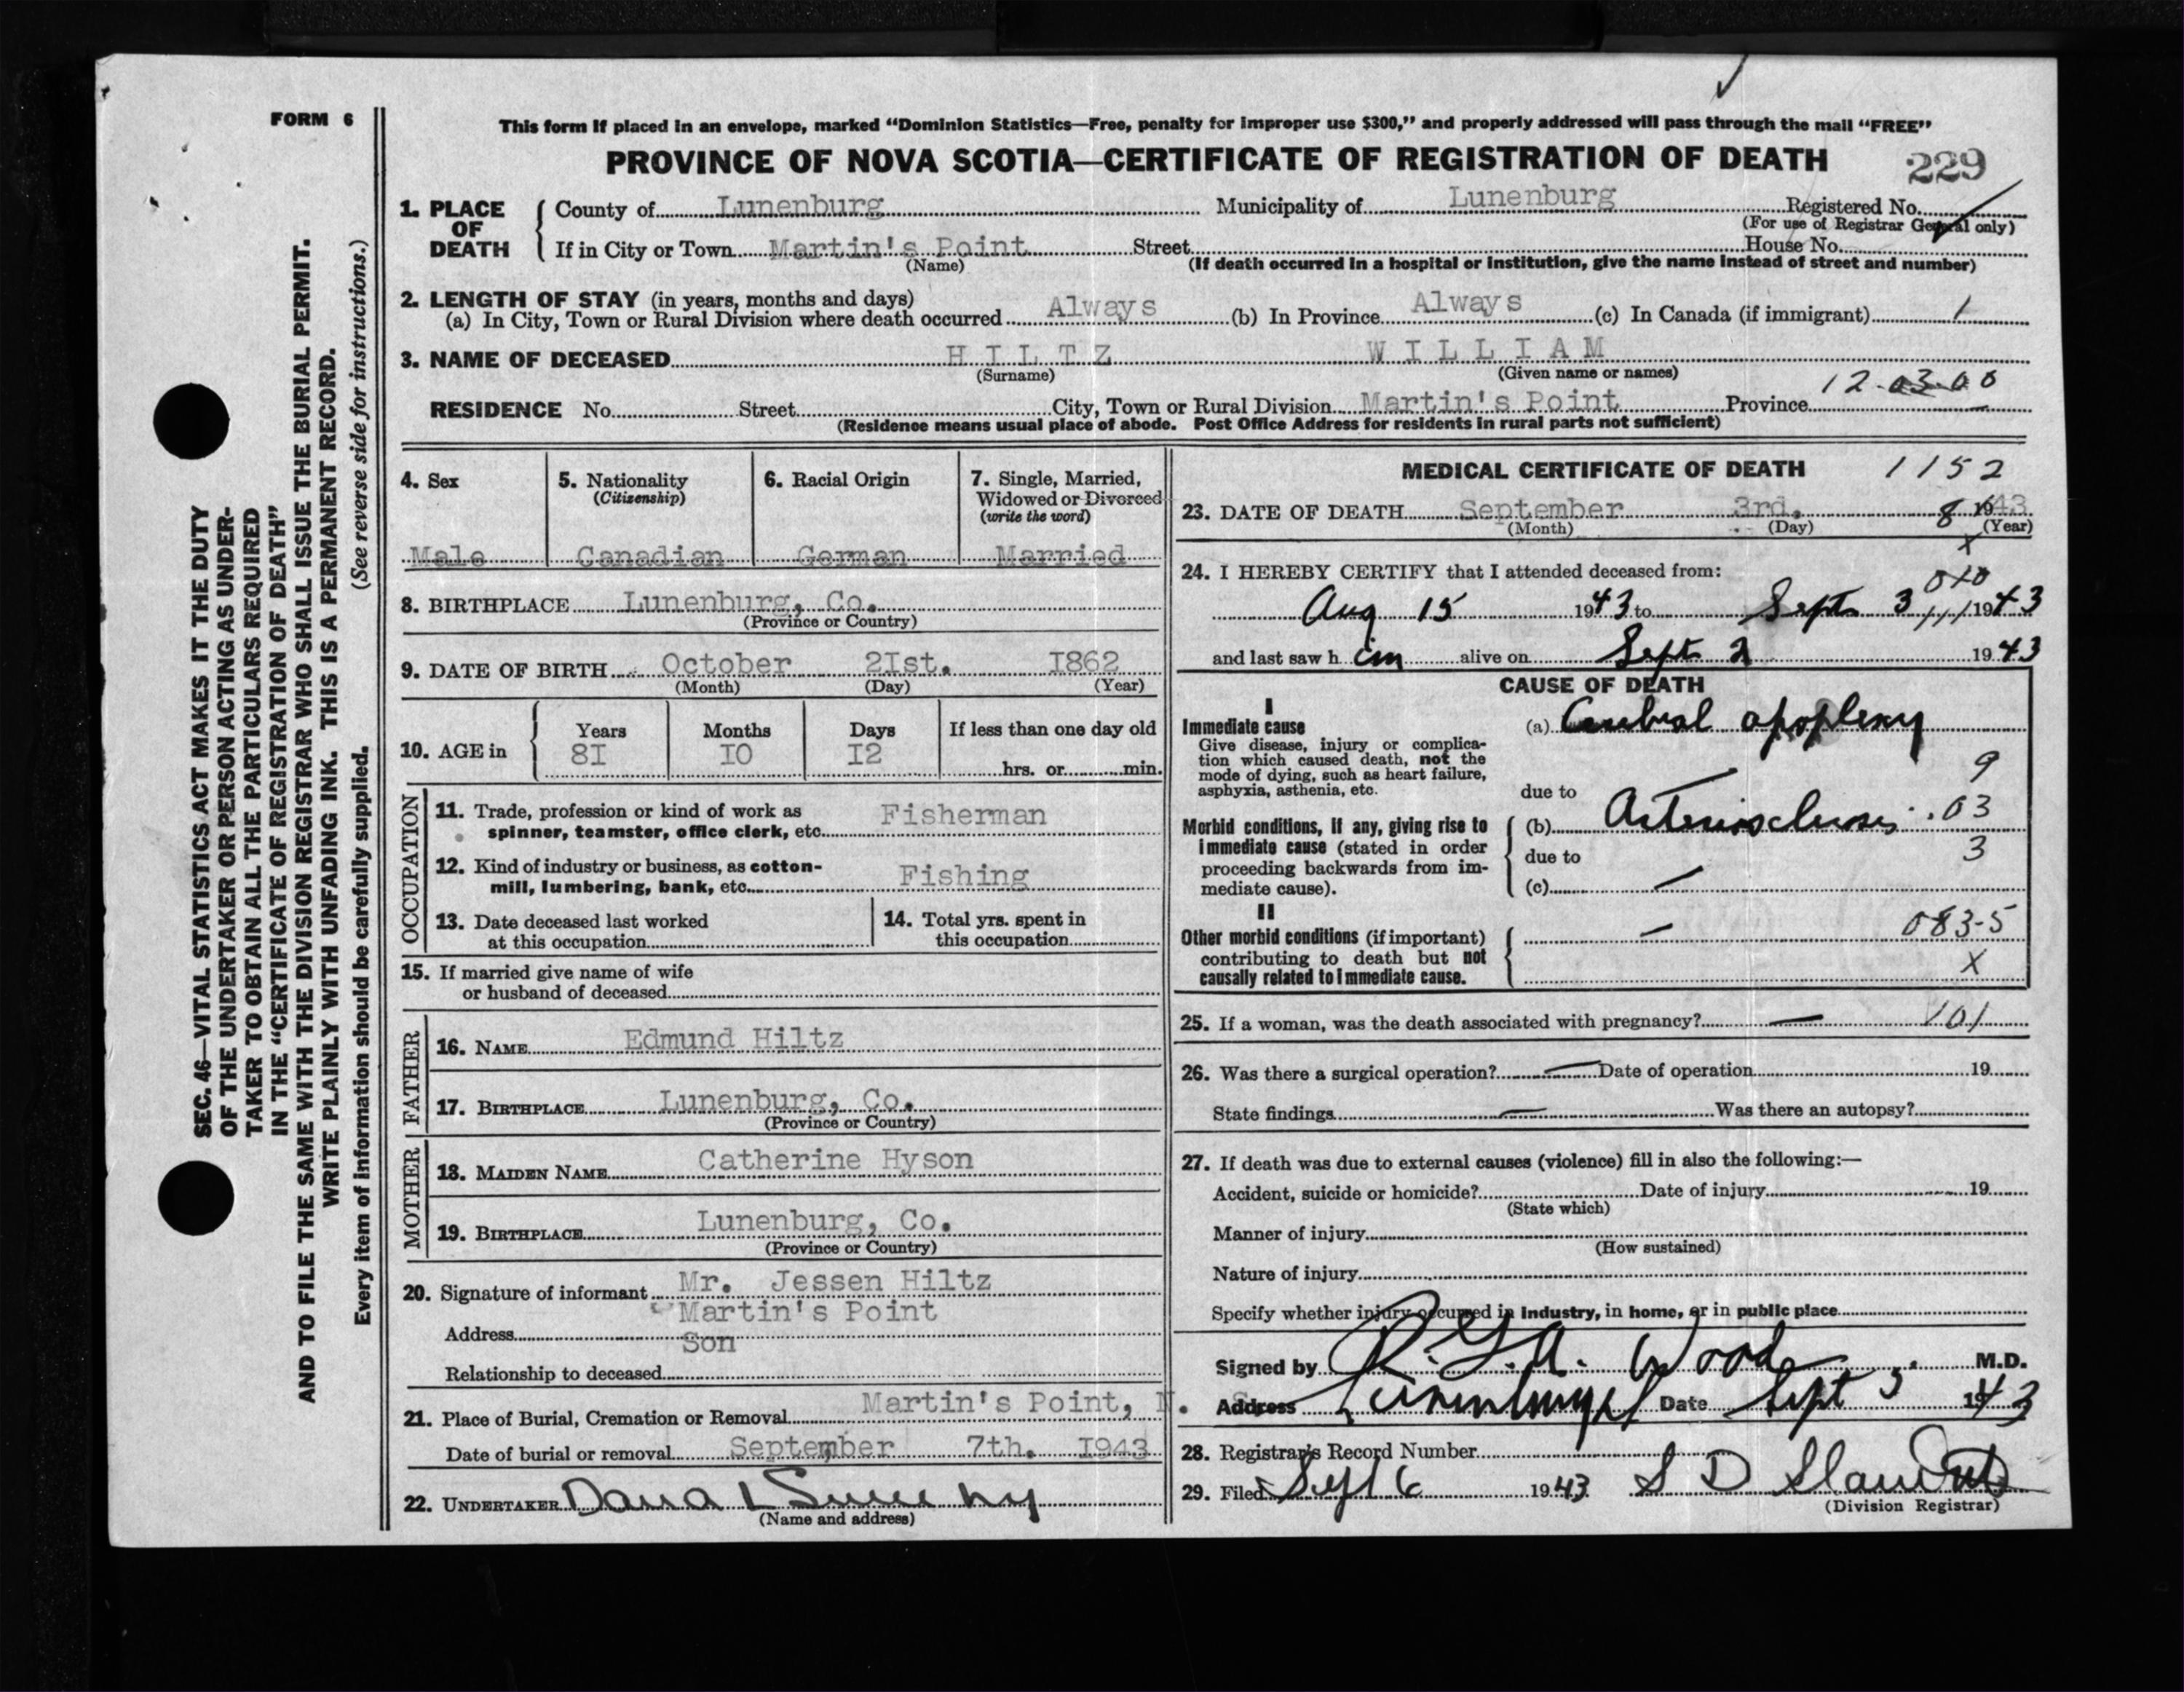 FORM 6
This form if placed in an envelope, marked "Dominion Statistics—Free, penalty for improper use $300," and properly addressed will pass through the mail "FREE"
PROVINCE OF NOVA SCOTIA—CERTIFICATE OF REGISTRATION OF DEATH
229
1. PLACE OF DEATH
County of Lunenburg Municipality of Lunenburg Registered No.
(For use of Registrar General only)
If in City or Town Martin's Point Street House No.
(Name) (If death occurred in a hospital or institution, give the name instead of street and number)
2. LENGTH OF STAY (in years, months and days)
(a) In City, Town or Rural Division where death occurred Always (b) In Province Always (c) In Canada (if immigrant) /
3. NAME OF DECEASED HILTZ WILLIAM
(Surname) (Given name or names)
12-03-00
RESIDENCE No. Street City, Town or Rural Division Martin's Point Province
(Residence means usual place of abode. Post Office Address for residents in rural parts not sufficient)
4. Sex 5. Nationality 6. Racial Origin 7. Single, Married,
(Citizenship) Widowed or Divorced
(write the word)
Male Canadian German Married
8. BIRTHPLACE Lunenburg, Co.
(Province or Country)
9. DATE OF BIRTH October 2Ist. I862
(Month) (Day) (Year)
Years Months Days If less than one day old
10. AGE in 8I IO I2
hrs. or min.
OCCUPATION
11. Trade, profession or kind of work as
spinner, teamster, office clerk, etc. Fisherman
12. Kind of industry or business, as cotton-
mill, lumbering, bank, etc. Fishing
13. Date deceased last worked 14. Total yrs. spent in
at this occupation this occupation
15. If married give name of wife
or husband of deceased
FATHER
16. NAME Edmund Hiltz
17. BIRTHPLACE Lunenburg, Co.
(Province or Country)
MOTHER
18. MAIDEN NAME Catherine Hyson
19. BIRTHPLACE Lunenburg, Co.
(Province or Country)
20. Signature of informant Mr. Jessen Hiltz
Martin's Point
Address
Son
Relationship to deceased
21. Place of Burial, Cremation or Removal Martin's Point, N. S.
Date of burial or removal September 7th. I943
22. UNDERTAKER Dana L Sweeny
(Name and address)
MEDICAL CERTIFICATE OF DEATH 1152
23. DATE OF DEATH September 3rd. 8 1943
(Month) (Day) (Year)
x
24. I HEREBY CERTIFY that I attended deceased from:
010
Aug 15 1943 to Sept 3 1943
and last saw him alive on Sept 2 1943
CAUSE OF DEATH
I
Immediate cause (a) Cerebral apoplexy
Give disease, injury or complica-
tion which caused death, not the
mode of dying, such as heart failure,
asphyxia, asthenia, etc. due to
9
Morbid conditions, if any, giving rise to (b) Arteriosclerosis .03
immediate cause (stated in order due to 3
proceeding backwards from im-
mediate cause). (c)
II
Other morbid conditions (if important) 083-5
contributing to death but not X
causally related to immediate cause.
25. If a woman, was the death associated with pregnancy? — 101
26. Was there a surgical operation? — Date of operation 19
State findings — Was there an autopsy?
27. If death was due to external causes (violence) fill in also the following:—
Accident, suicide or homicide? Date of injury 19
(State which)
Manner of injury
(How sustained)
Nature of injury
Specify whether injury occurred in Industry, in home, or in public place
Signed by R. G. A. Wood M.D.
Address Lunenburg Date Sept 3 1943
28. Registrar's Record Number
29. Filed Sept 6 1943 S D
(Division Registrar)
SEC. 46—VITAL STATISTICS ACT MAKES IT THE DUTY
OF THE UNDERTAKER OR PERSON ACTING AS UNDER-
TAKER TO OBTAIN ALL THE PARTICULARS REQUIRED
IN THE "CERTIFICATE OF REGISTRATION OF DEATH"
AND TO FILE THE SAME WITH THE DIVISION REGISTRAR WHO SHALL ISSUE THE BURIAL PERMIT.
WRITE PLAINLY WITH UNFADING INK. THIS IS A PERMANENT RECORD.
Every item of information should be carefully supplied. (See reverse side for instructions.)